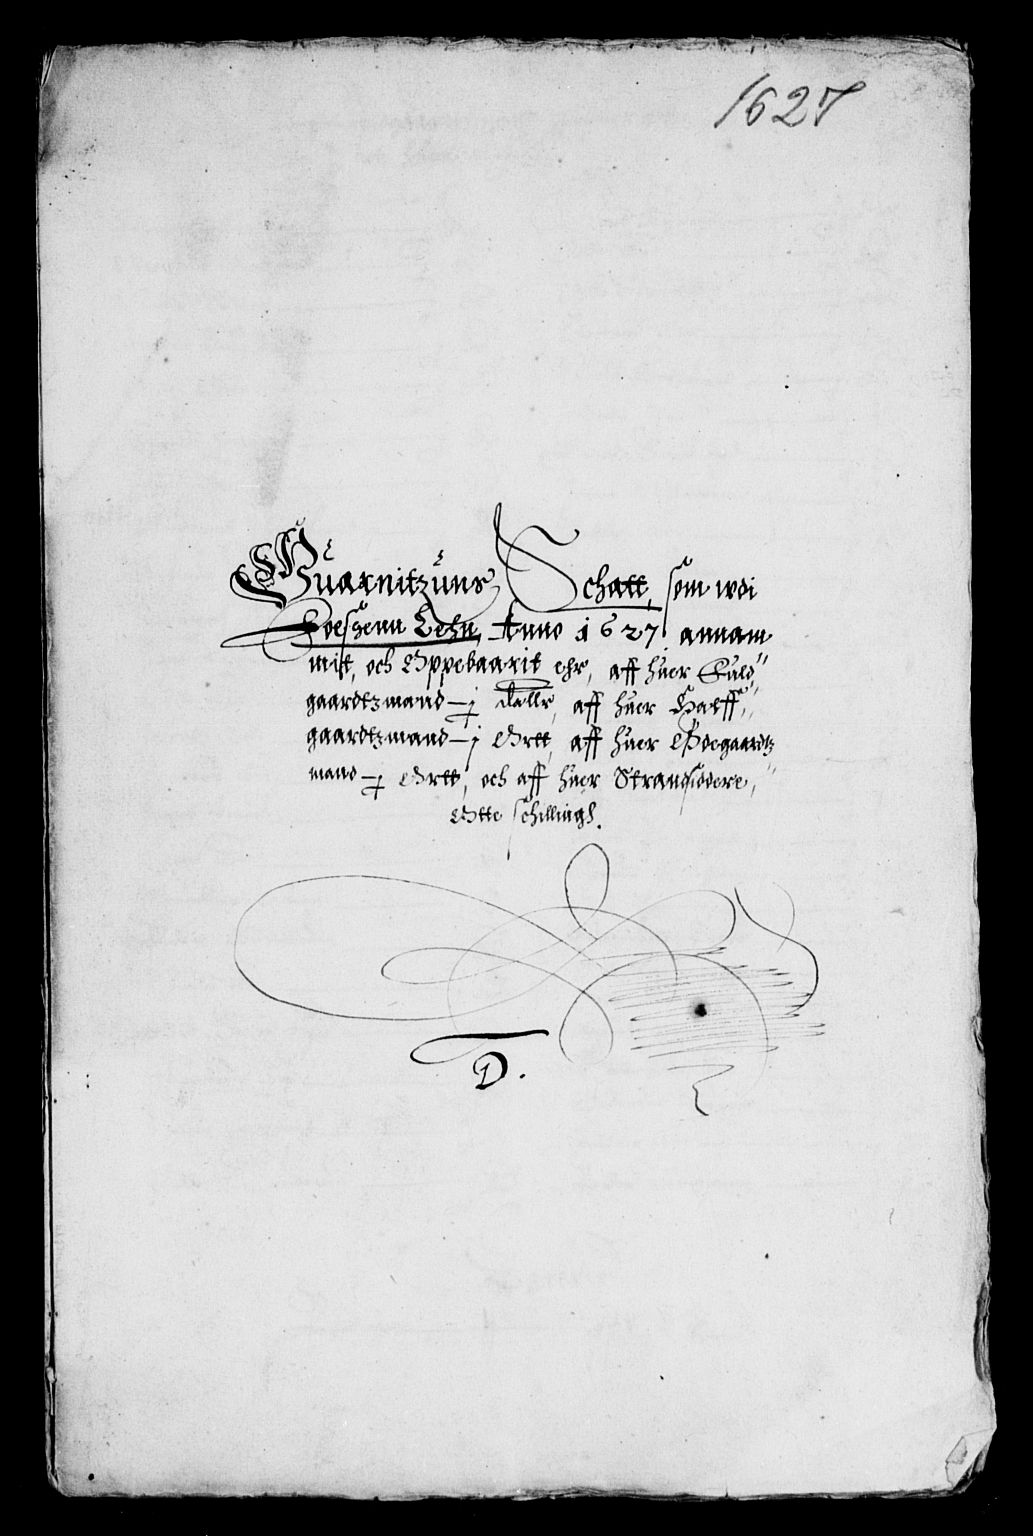 1627
Guarnitzuns Schatt, som wdi
Soeshenn Lehn, Anno 1627 annam
mist, och Oppebaarit ehr, aff huer Fuld
gaardtzmand – j daller, aff huer Halff
gaardtzmand – j Ortt, aff huer Ødegaardtz
mand – j Ortt, och aff huer Strandsiddere,
Otte schillingh.
D.